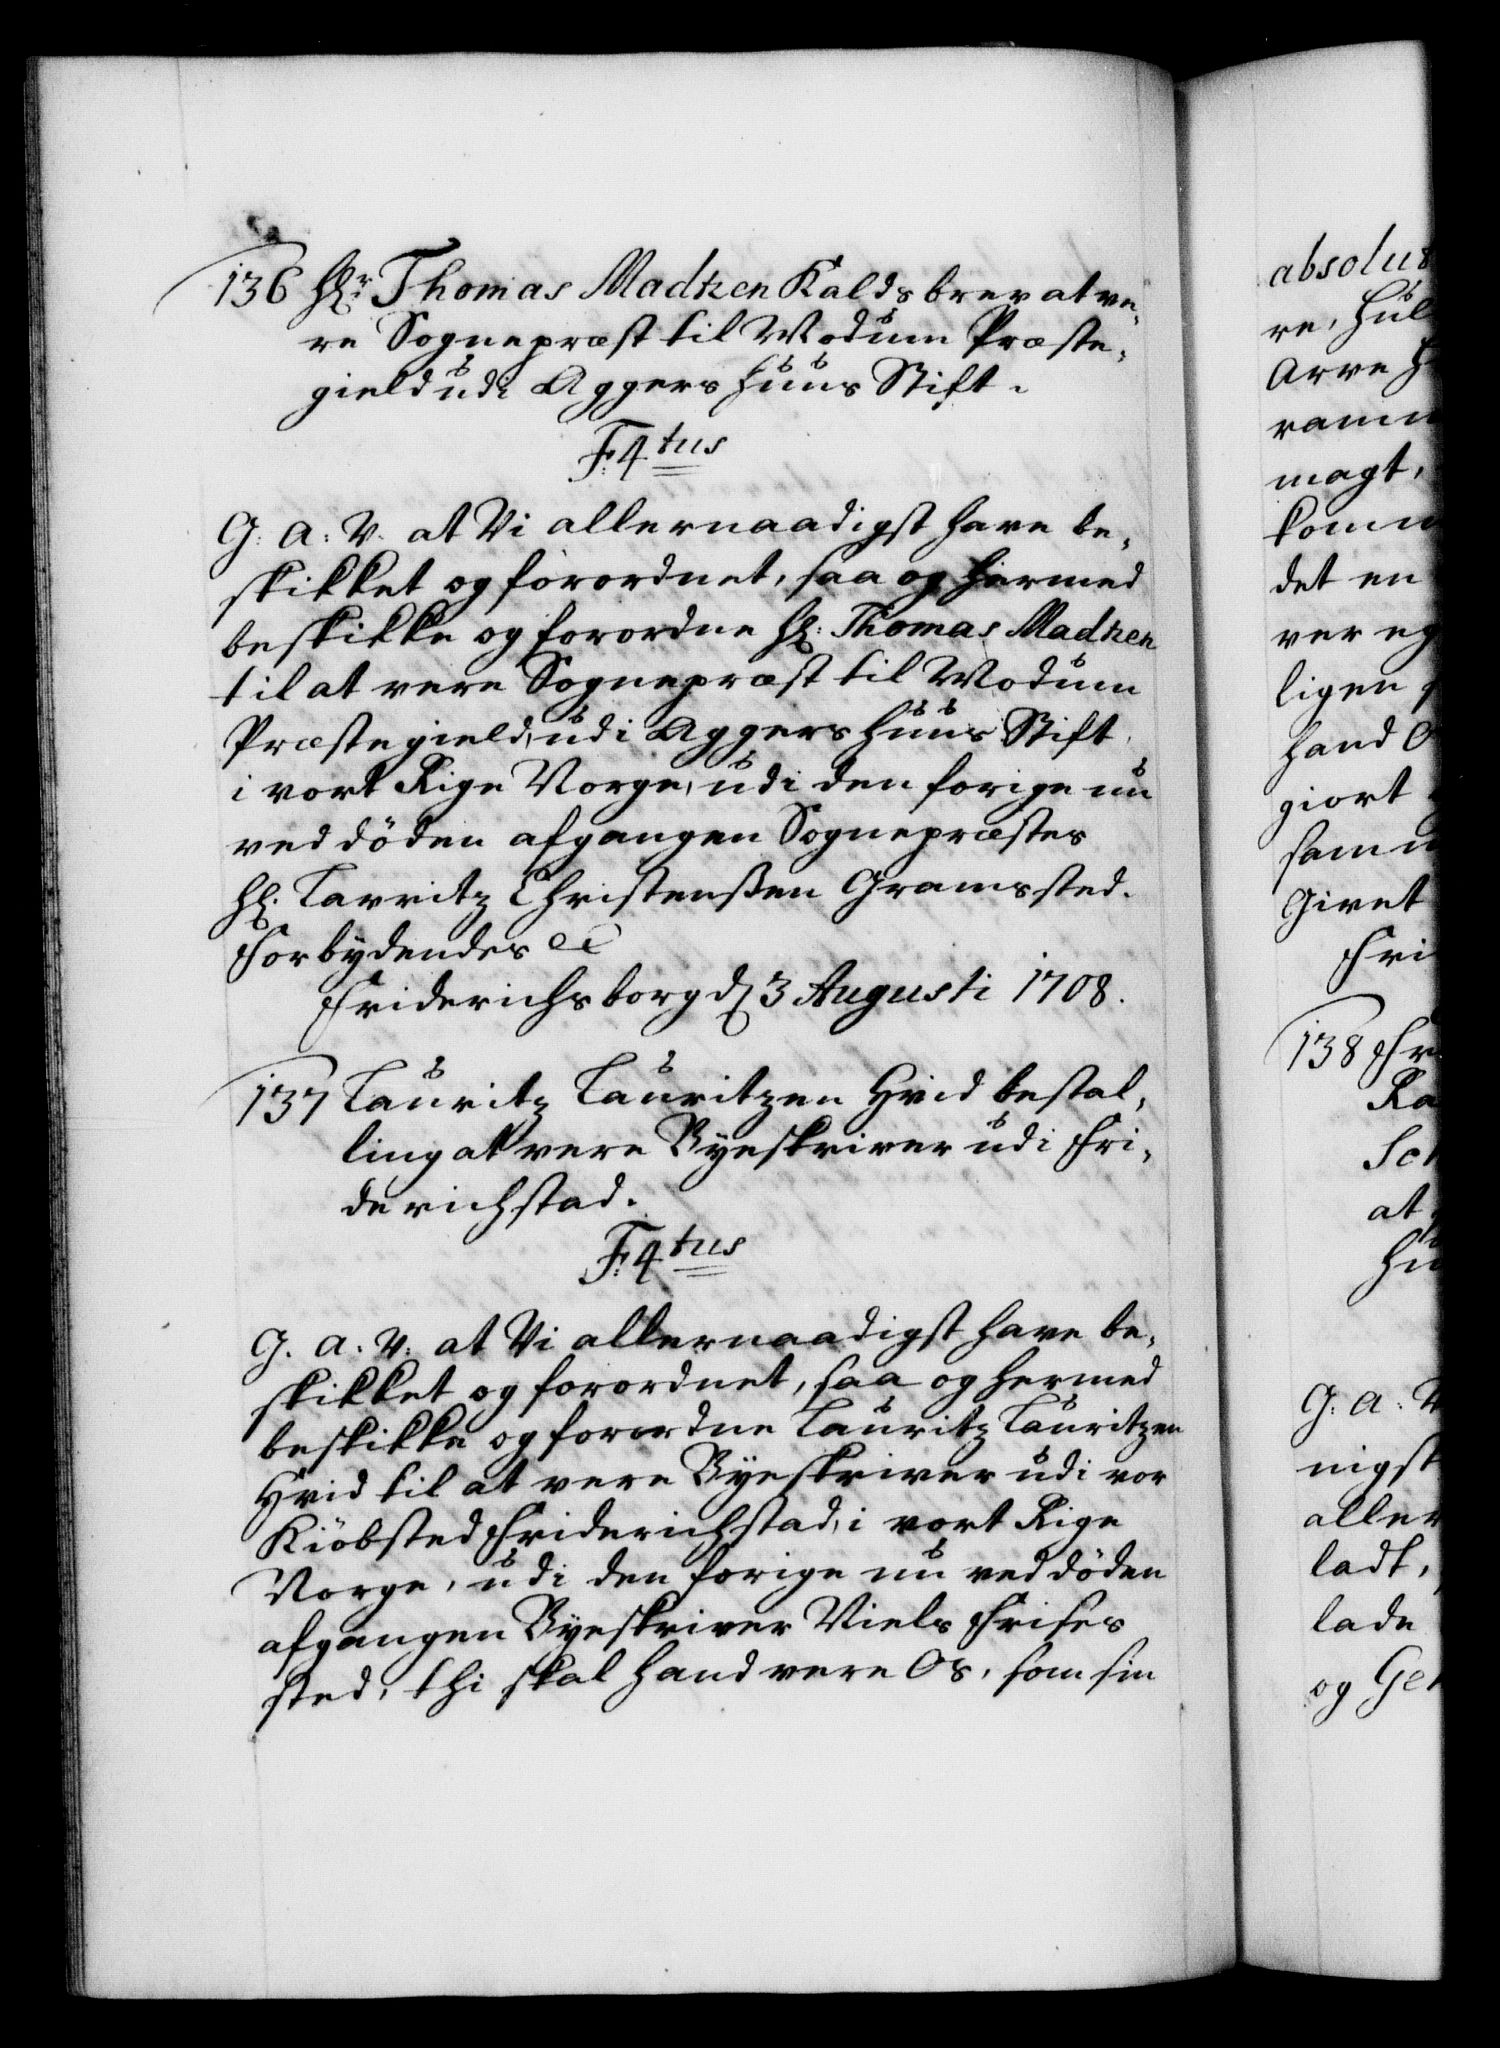 136 Hr. Thomas Madtzen Kalds brev at ve,
re Sognepræst til Modum Præste,
gield udi Aggershuus Stift.
F: 4tus
G: A: V. at Vi allernaadigst have be,
skikket og forordnet, saa og hermed
beskikke og forordne Hr: Thomas Madtzen
til at vere Sognepræst til Modum
Præstegield, udi Aggershuus Stift,
i vort Rige Norge, udi den forige nu
ved döden afgangen Sognepræstes
Hr. Lavritz Christenßen Grams sted.
Forbydendes etc
Friderichsborg d 3 Augusti 1708.
137 Lauritz Lauritzen Hvid bestal,
ling at vere Byeskriver udi Fri,
derichstad.
F: 4tus
G. A. V: at Vi allernaadigst have be,
skikket og forordnet, saa og hermed
beskikke og forordne Lauritz Lauritzen
Hvid til at vere Byeskriver udi vor
Kiöbsted Friderichstad, i vort Rige
Norge, udi den forige nu ved döden
afgangen Byeskriver Niels Frises
sted, thi skal hand vere Os, som sin
absolu
re, hul
Arve H
ramm
magt,
komm
det en
ver eg
ligen
hand O
giort
sam
Givet
Fri
138 Fr
Ra
Sch
at
Hu
G: A: V
nigst
aller
ladt,
lade
og Ge